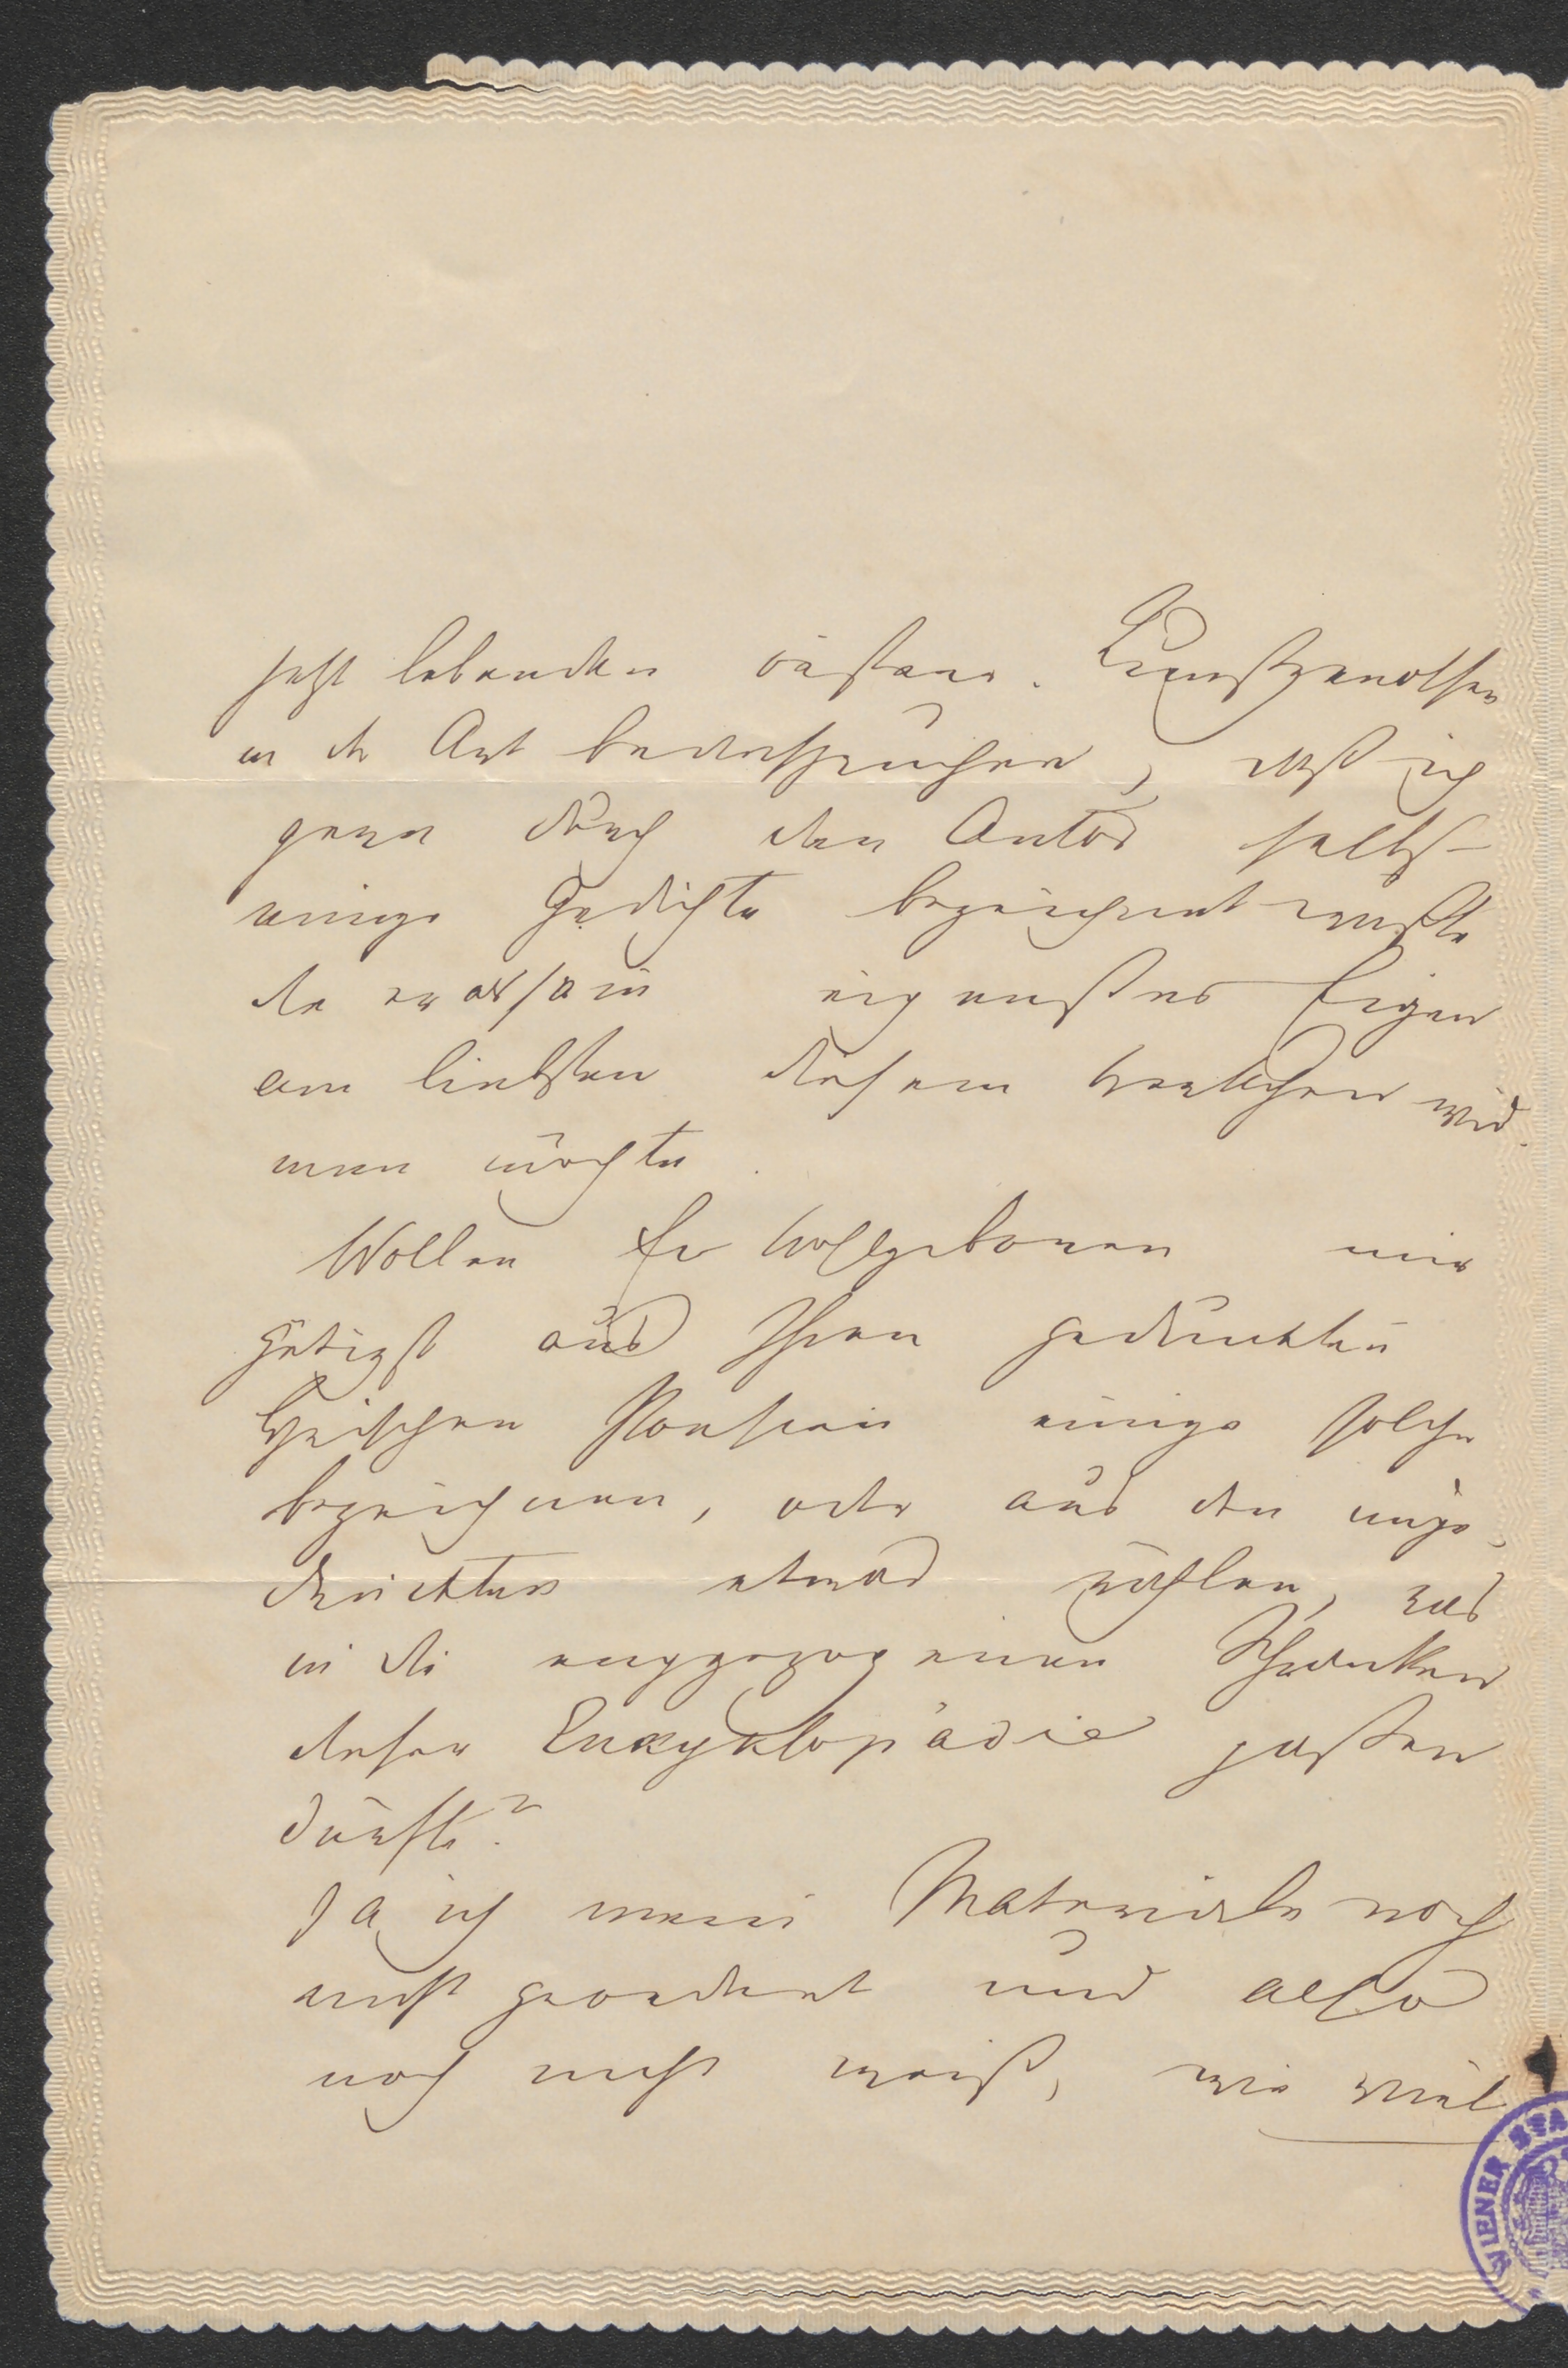 jetzt lebenden österr. Kunstgenossen
in der Art beanspruchen, daß ich
gern durch den Autor selbst
einige Gedichte bezeichnet wüßte
die er als sein eigenstes Eigen
am liebsten diesem Werkchen wid-
men möchte.
Wollen Ew Wolgeboren mir
gütigst aus Ihren gedruckten
lyrischen Poesien einige solche
bezeichnen, oder aus den unge-
druckten etwas wählen, was
in die enggezogenen Schranken
dieser Enkyklopädie passen
dürfte?
Da ich mein Materiale noch
nicht geordnet und also
noch nicht weiß, wie viel
WIENER STA